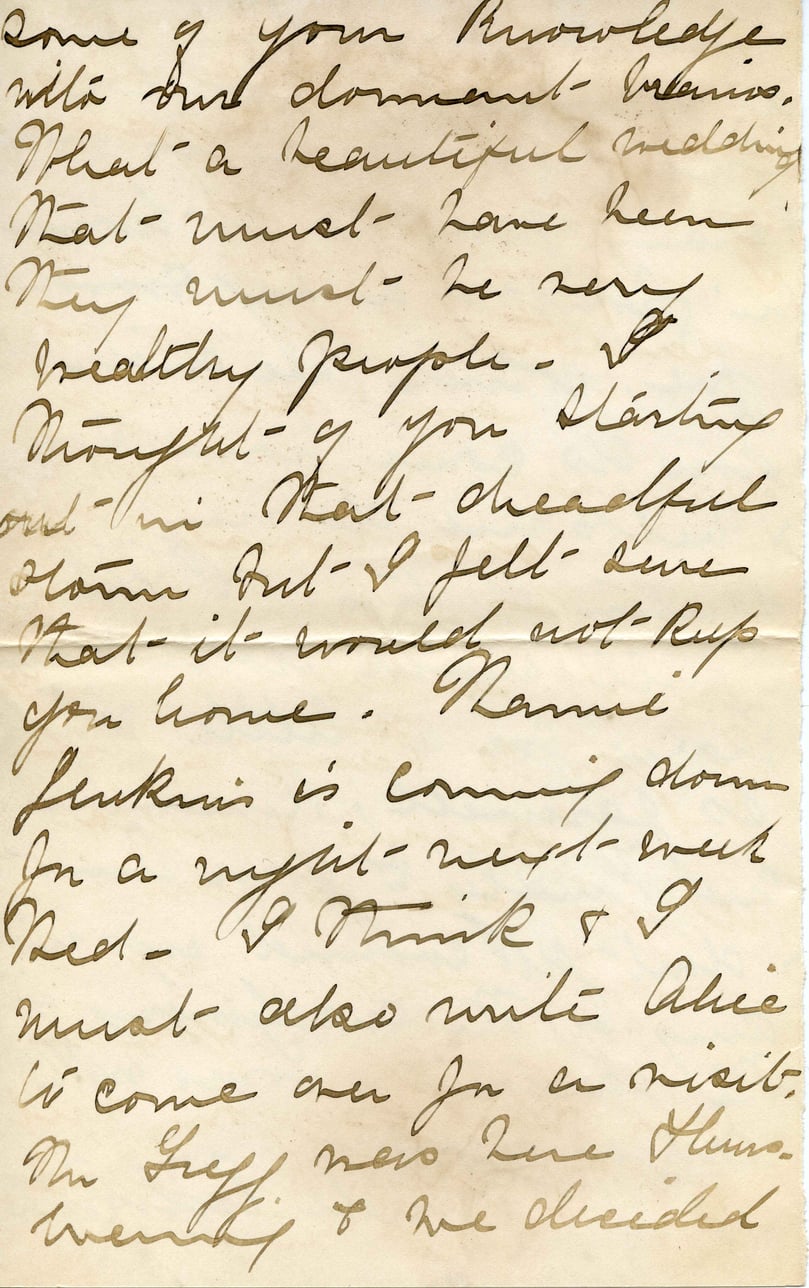 some of your knowledge
with our dormant brains.
What a beautiful wedding
that must have been
they must be very
wealthy people - I
thought of you starting
out in that dreadful
storm but I felt sure
that it would not keep
you home. Nannie
Jenkins is coming down
for a night next week
Wed - I think & I
must also write Alice
to come over for a visit.
Mr Gregg was here Thurs.
evening & we decided